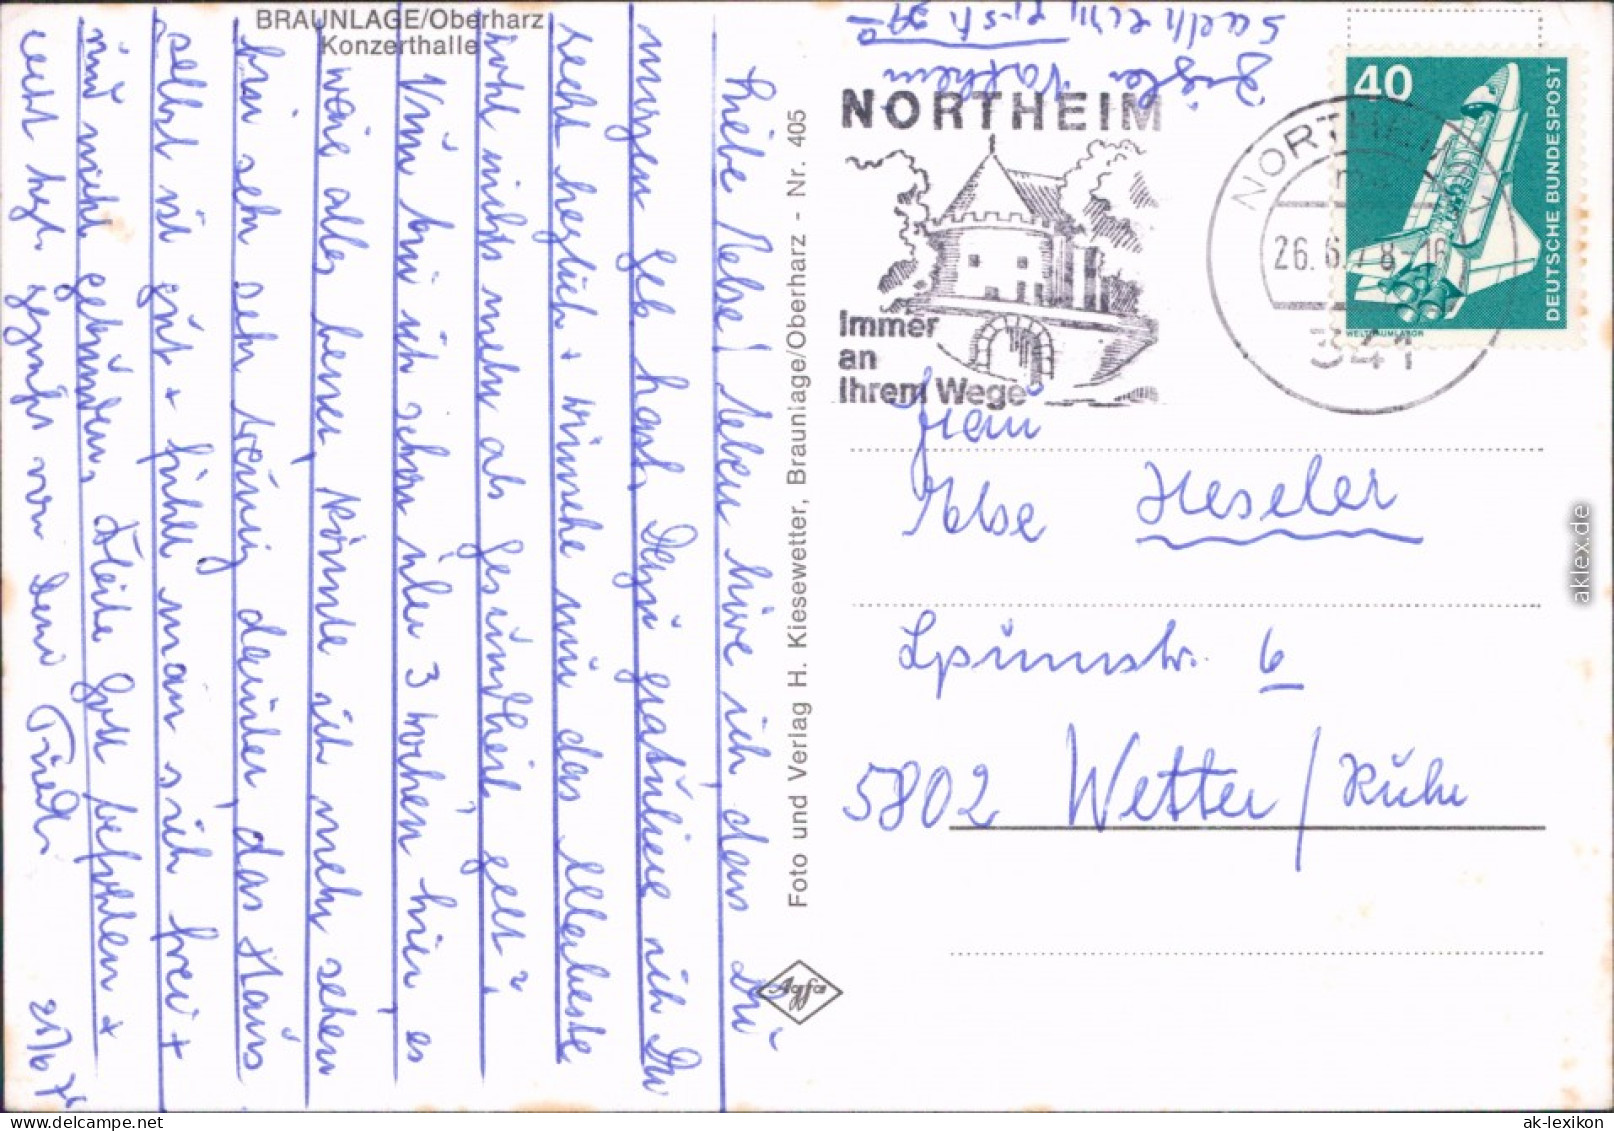 BRAUNLAGE/Oberharz
Konzerthalle
Liebe Else! Eben höre ich dass Du
morgen geb. hast. Dazu gratuliere ich Dir
recht herzlich + wünsche nur das Allerbeste
wohl nichts mehr als Gesundheit gelt?
Nun bin ich schon über 3 Wochen hier es
wäre alles besser, könnte ich mehr sehen
bin sehr sehr traurig darüber, das Haus
selbst ist gut + fühlt man sich frei +
und nicht gebunden. Bleibe Gott befohlen +
recht hzl. gegrüßt von Deiner
Foto und Verlag H. Kiesewetter, Braunlage/Oberharz - Nr. 405
Agfa
NORTHEIM
Immer
an
Ihrem Wege
NORTHEIM
26.6.78-16
341
40
DEUTSCHE BUNDESPOST
WELTRAUMLABOR
Frau
Else Heseler
5802 Wetter/Ruhr
aklex.de
ak-lexikon